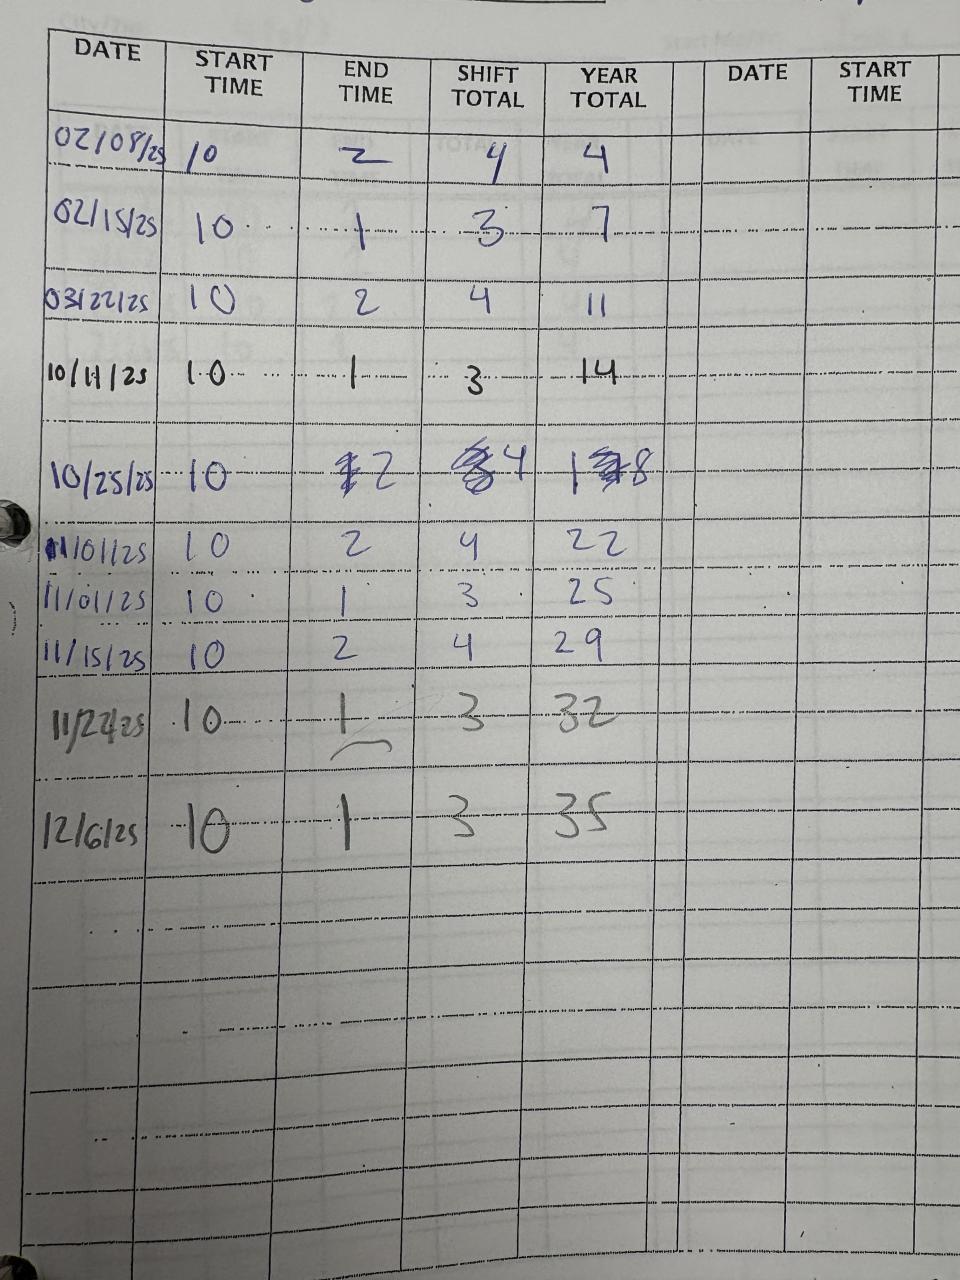 DATE START TIME END TIME SHIFT TOTAL YEAR TOTAL DATE START TIME
02/08/25 10 2 4 4
02/15/25 10 1 3 7
03/22/25 10 2 4 11
10/11/25 10 1 3 14
10/25/25 10 2 4 18
11/01/25 10 2 4 22
11/01/25 10 1 3 25
11/15/25 10 2 4 29
11/22/25 10 1 3 32
12/6/25 10 1 3 35